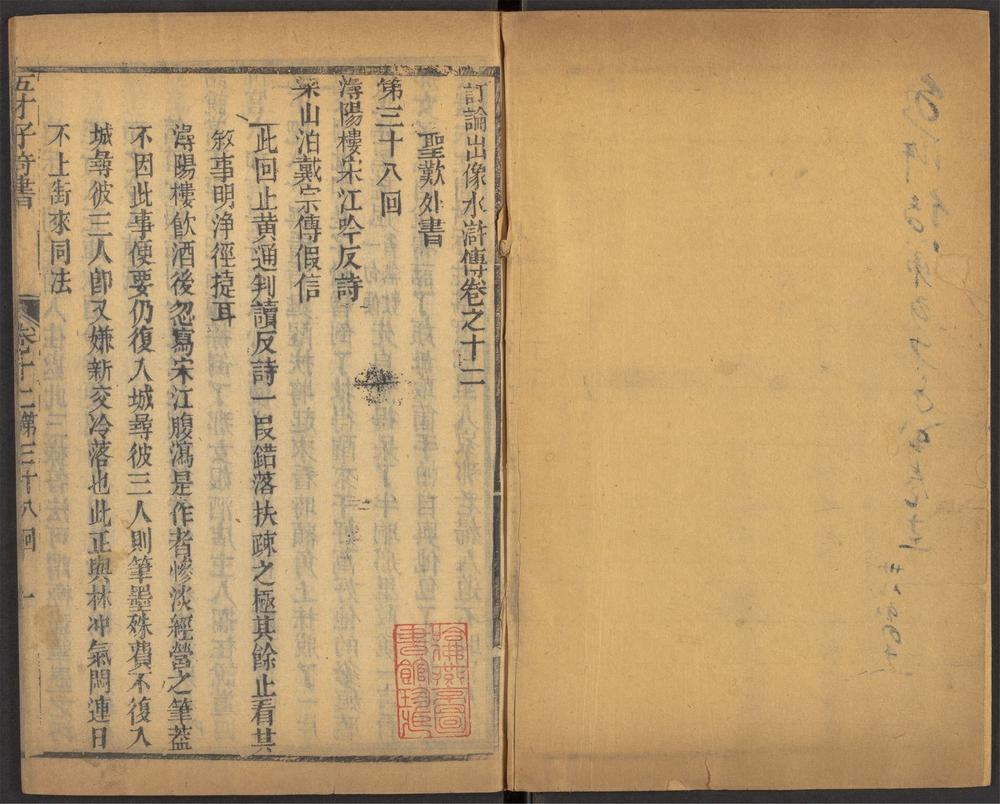 訂論出像水滸傳卷之十二
聖歎外書
第三十八回
潯陽樓宋江吟反詩
梁山泊戴宗傳假信
此回止黃通判讀反詩一叚錯落扶疎之極其餘止看其
敘事明淨徑捷耳
潯陽樓飲酒後忽寫宋江腹瀉是作者慘淡經營之筆葢
不因此事便要仍復入城尋彼三人則筆墨殊費不復入
城尋彼三人卽又嫌新交冷落也此正與林冲氣悶連日
不上街來同法
五才子奇書
卷十二第三十八回
一